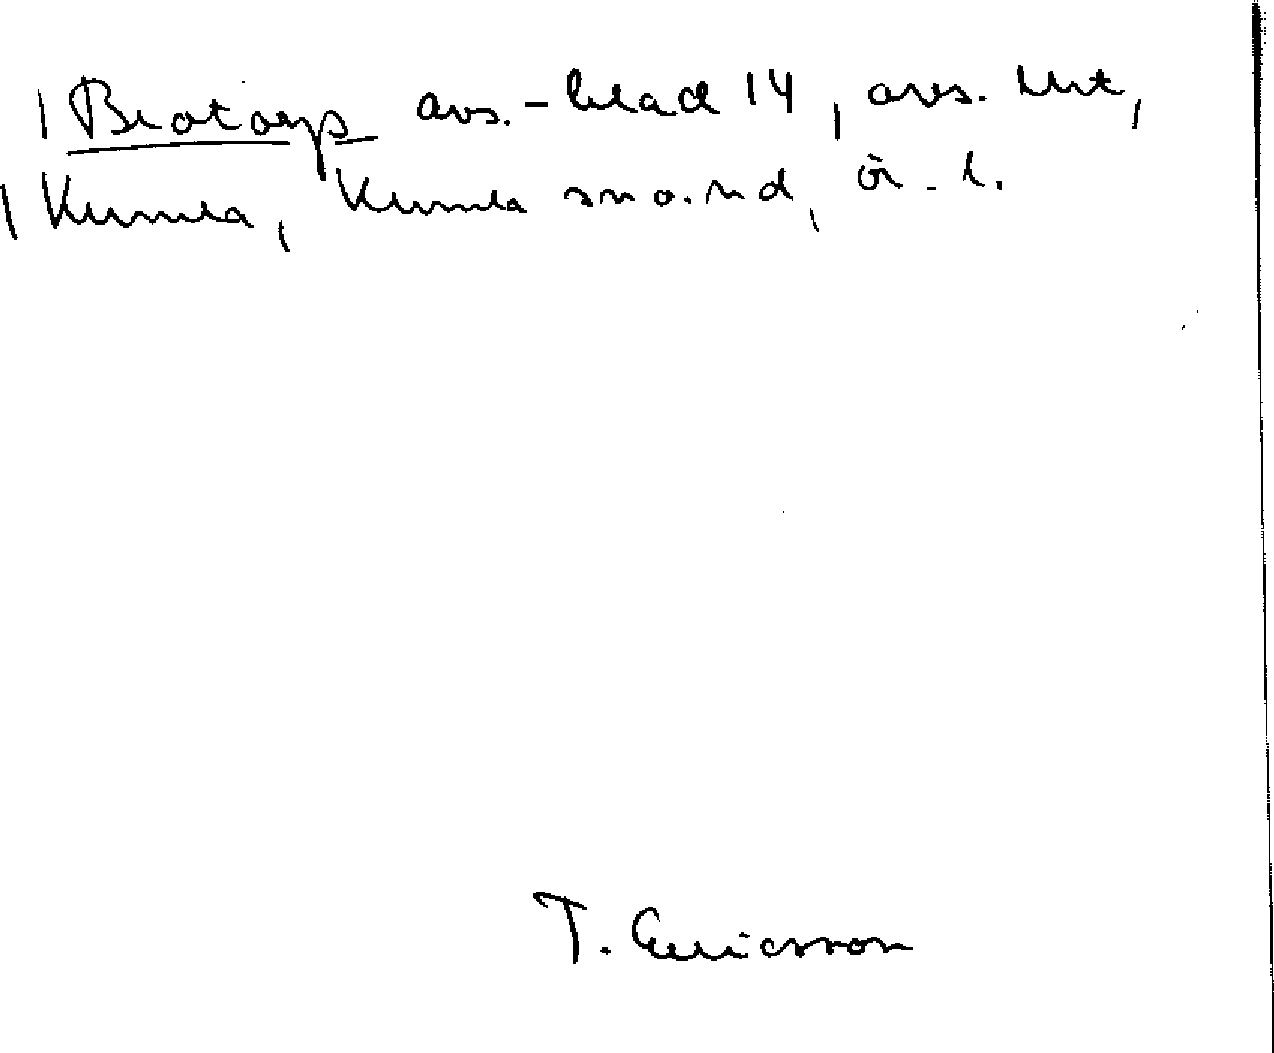 Brotorp avs.-blad 14, avs.
Kumla, Kumla sn o. hd, Ör. l.
T. Ericsson